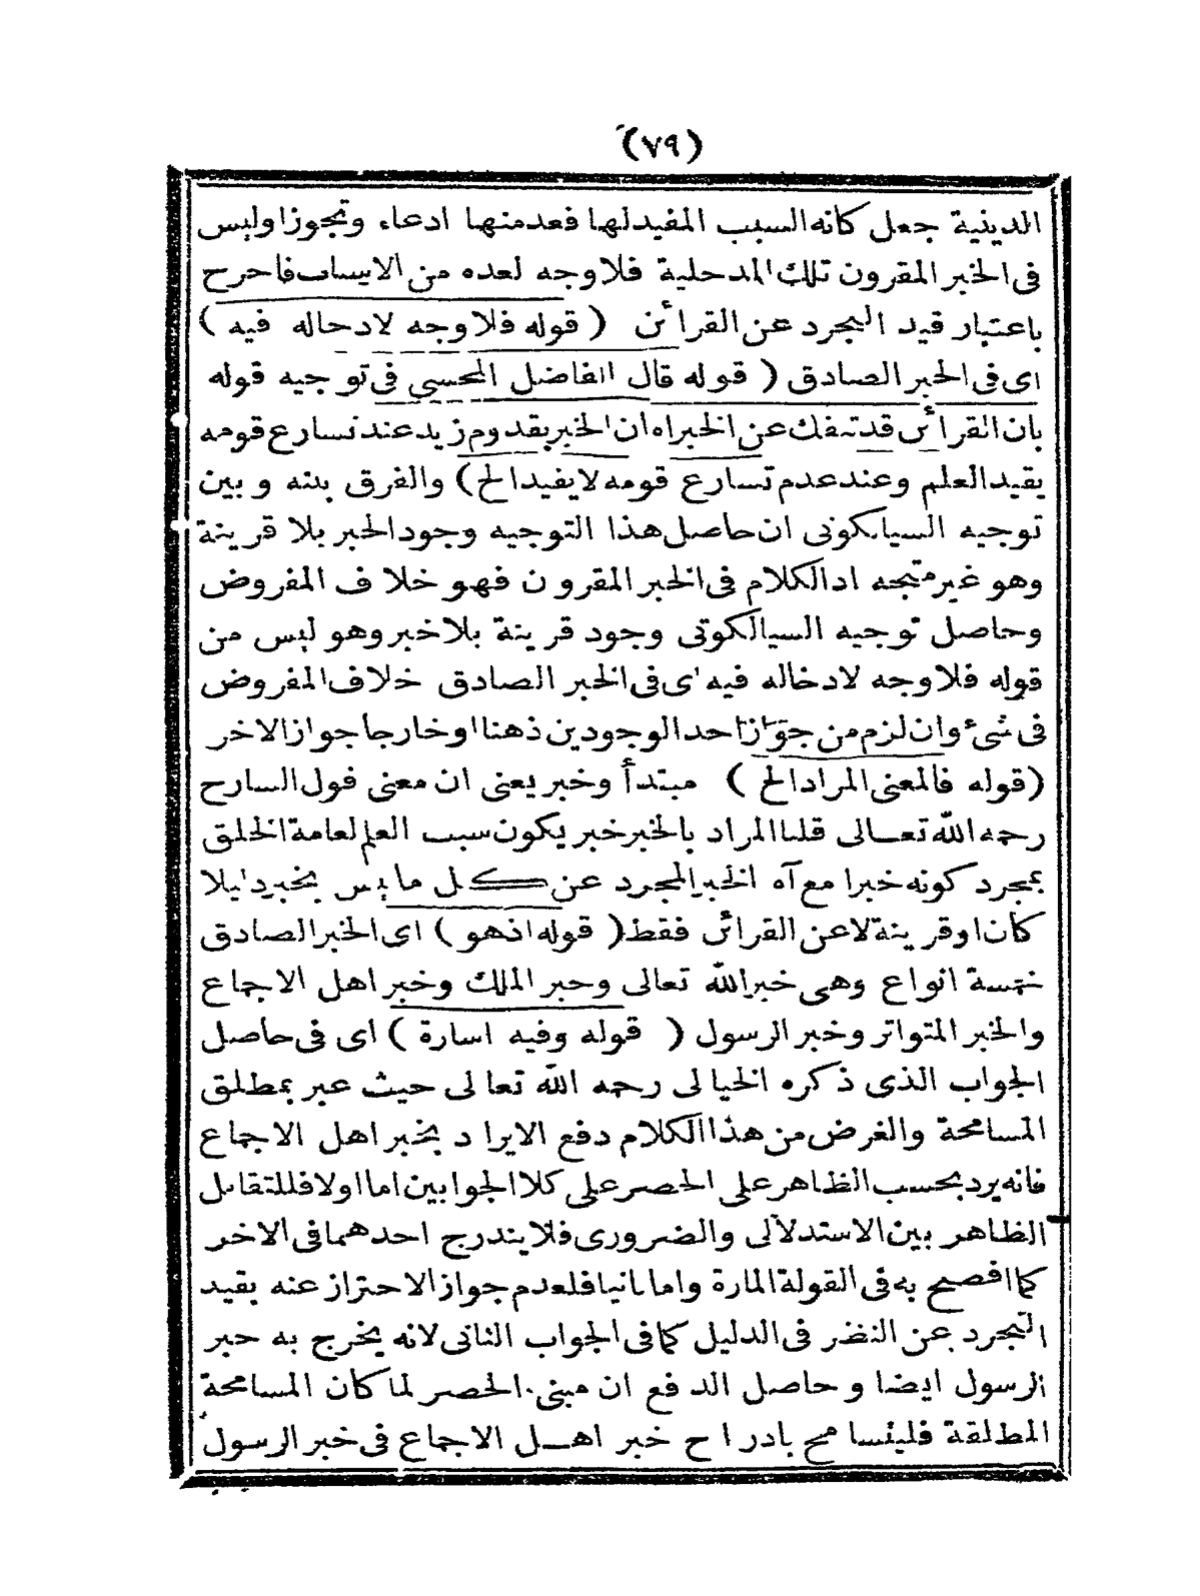 (٧٩)
الدينية جعل كانه السبب المفيد لها فعد منها ادعاء وتجوزا وليس
فى الخبر المقرون تلك المدخلية فلا وجه لعده من الاسباب فاخرج
باعتبار قيد التجرد عن القرائن ( قوله فلا وجه لادخاله فيه )
اى فى الخبر الصادق ( قوله قال الفاضل المحشى فى توجيه قوله
بان القرائن قد تنفك عن الخبر اه ان الخبر بقدوم زيد عند تسارع قومه
يفيد العلم وعند عدم تسارع قومه لا يفيد الخ ) والفرق بينه و بين
توجيه السيالكوتى ان حاصل هذا التوجيه وجود الخبر بلا قرينة
وهو غير متجه اذ الكلام فى الخبر المقرون فهو خلاف المفروض
وحاصل توجيه السيالكوتى وجود قرينة بلا خبر وهو ليس من
قوله فلا وجه لادخاله فيه اى فى الخبر الصادق خلاف المفروض
فى شئ وان لزم من جواز احد الوجودين ذهنا او خارجا جواز الاخر
( قوله فالمعنى المراد الخ ) مبتدأ وخبر يعنى ان معنى قول الشارح
رحمه الله تعالى قلنا المراد بالخبر خبر يكون سبب العلم لعامة الخلق
بمجرد كونه خبرا مع آه الخبر المجرد عن كل ما ليس بخبر دليلا
كان او قرينة لا عن القرائن فقط ( قوله اذ هو ) اى الخبر الصادق
خمسة انواع وهى خبر الله تعالى وخبر الملك وخبر اهل الاجماع
والخبر المتواتر وخبر الرسول ( قوله وفيه اشارة ) اى فى حاصل
الجواب الذى ذكره الخيالى رحمه الله تعالى حيث عبر بمطلق
المسامحة والغرض من هذا الكلام دفع الايراد بخبر اهل الاجماع
فانه يرد بحسب الظاهر على الحصر على كلا الجوابين اما اولا فللتقابل
الظاهر بين الاستدلالى والضرورى فلا يندرج احدهما فى الاخر
كما افصح به فى القولة المارة واما ثانيا فلعدم جواز الاحتراز عنه بقيد
التجرد عن النظر فى الدليل كما فى الجواب الثانى لانه يخرج به خبر
الرسول ايضا و حاصل الدفع ان مبنى الحصر لما كان المسامحة
المطلقة فليتسامح بادراج خبر اهل الاجماع فى خبر الرسول